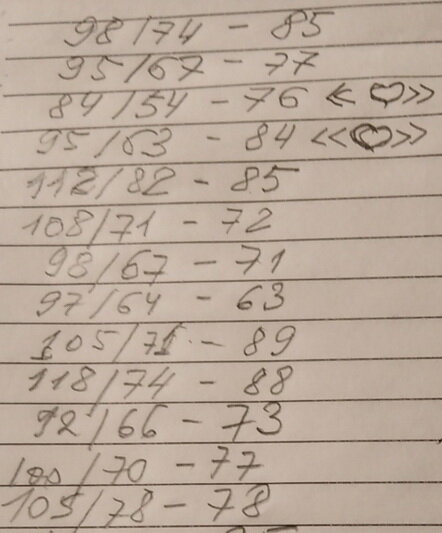 98/74 - 85
95/67 - 77
84/54 - 76 «♡»
95/63 - 84 «♡»
112/82 - 85
108/71 - 72
98/67 - 71
97/64 - 63
105/71 - 89
118/74 - 88
92/66 - 73
100/70 - 77
105/78 - 78